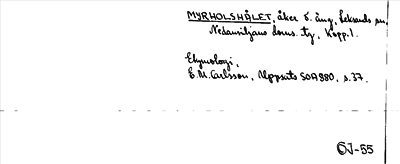 MYRHOLSHÅLET, åker o. äng, Leksands sn,
Nedansiljans doms. tg, Kopp.l.
Etymologi,
E.M. Carlsson, Uppsats SOA 880, s. 37.
ÖJ-55